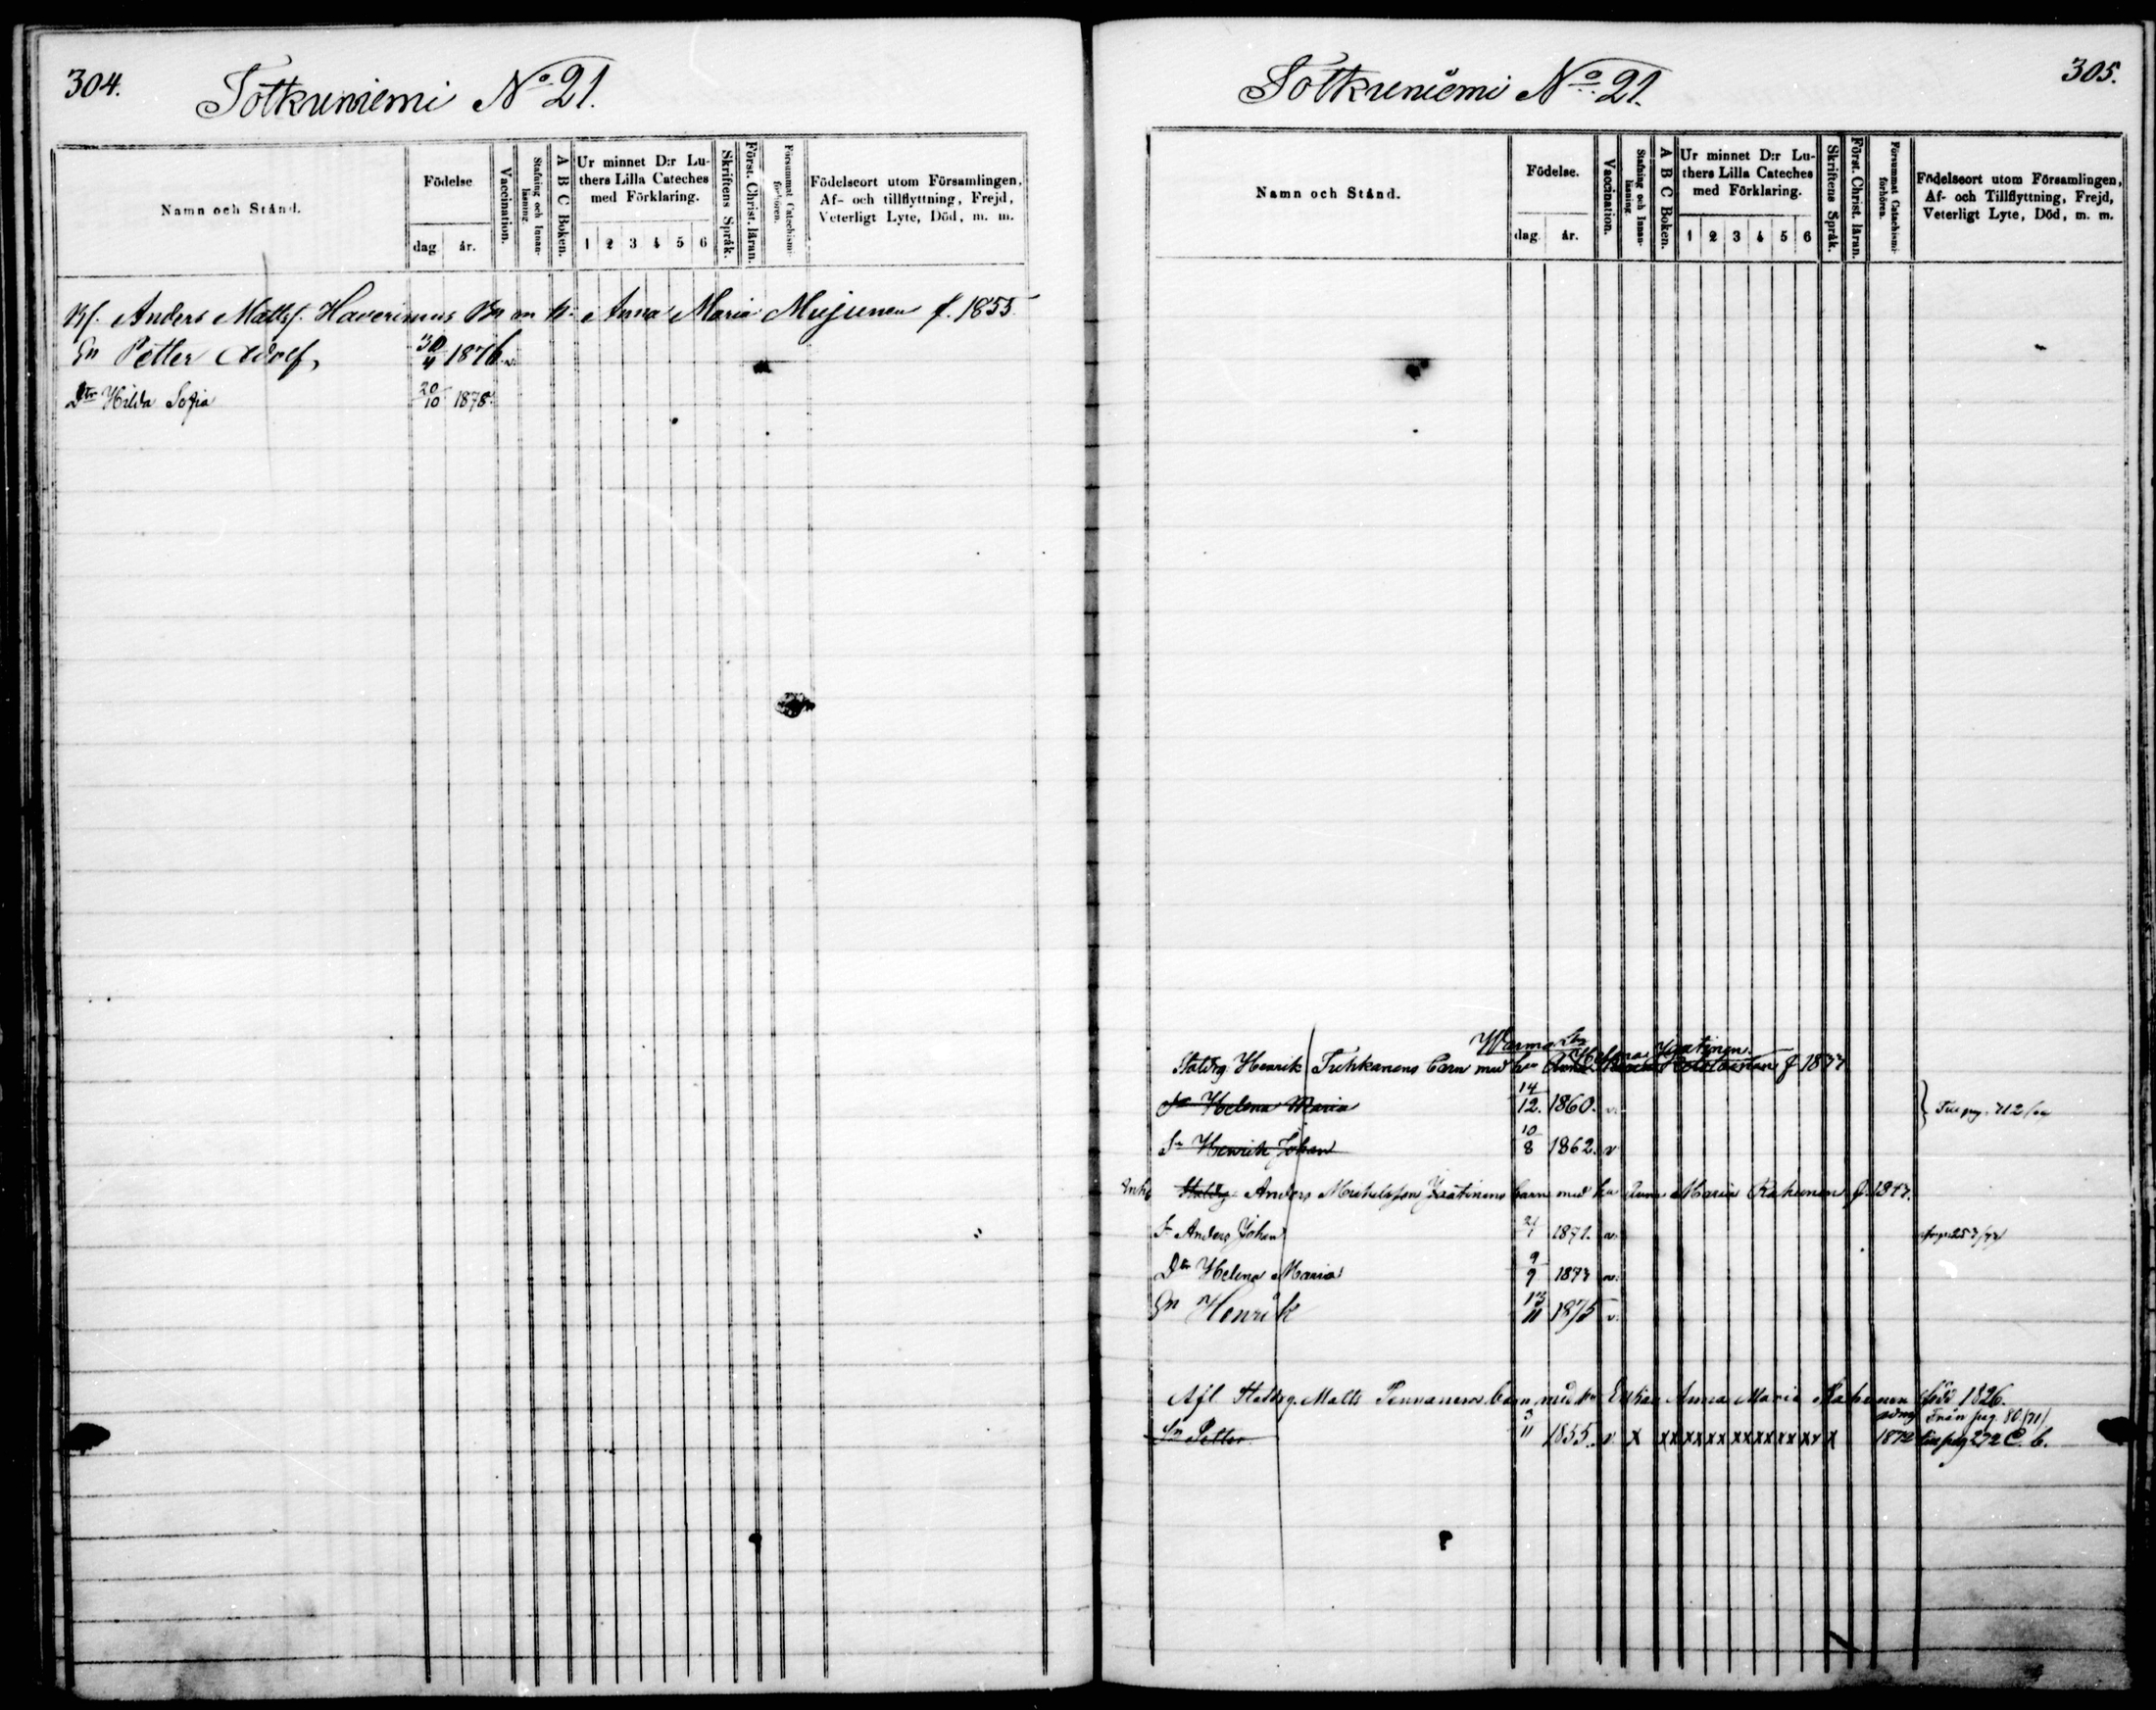 304.
Totkuniemi No 21.
Namn och Stånd.
Födelse
dag år.
Vaccination.
Stafning och Innanläsning.
A B C Boken.
Ur minnet D:r Luthers Lilla Cateches med Förklaring.
1 2 3 4 5 6
Skriftens Språk.
Först. Christ. läran.
Försummat Catechismiförhören.
Födelseort utom Församlingen,
Af- och tillflyttning, Frejd,
Veterligt Lyte, Död, m. m.
Anders Mattss. Haverinens Bn m h: Anna Maria Mujunen f. 1855.
Sn Petter Adolf, 30/4 1876 v.
Dtr Hilda Sofia 20/10 1878
305.
Totkuniemi No 21.
Namn och Stånd.
Födelse.
dag. år.
Vaccination.
Stafning och Innanläsning.
A B C Boken.
Ur minnet D:r Luthers Lilla Cateches med Förklaring.
1 2 3 4 5 6
Skriftens Språk.
Först. Christ. läran.
Försummat Catechismiförhören.
Födelseort utom Församlingen,
Af- och Tillflyttning, Frejd,
Veterligt Lyte, Död, m. m.
Helena Yaatinen
Henrik Tuhkanens barn med
Helena Maria 14/12. 1860. v.
Sn Henrik Johan 10/8 1862. v
Anders Michelsson Yaatinens barn med hu Anna Maria f. 1847.
Sn Anders Johan 1871. v.
Dtr Helena Maria 9/9 1873 v.
Sn Henrik 13/11 1875 v.
Afl Matts Pennanens barn med Enkan Anna Maria född 1826.
Från pag. 80./71/
Sn Petter 3/11 1855. v. x xx xx xx xx xx xx xx x 1872 pag 272 C. b.